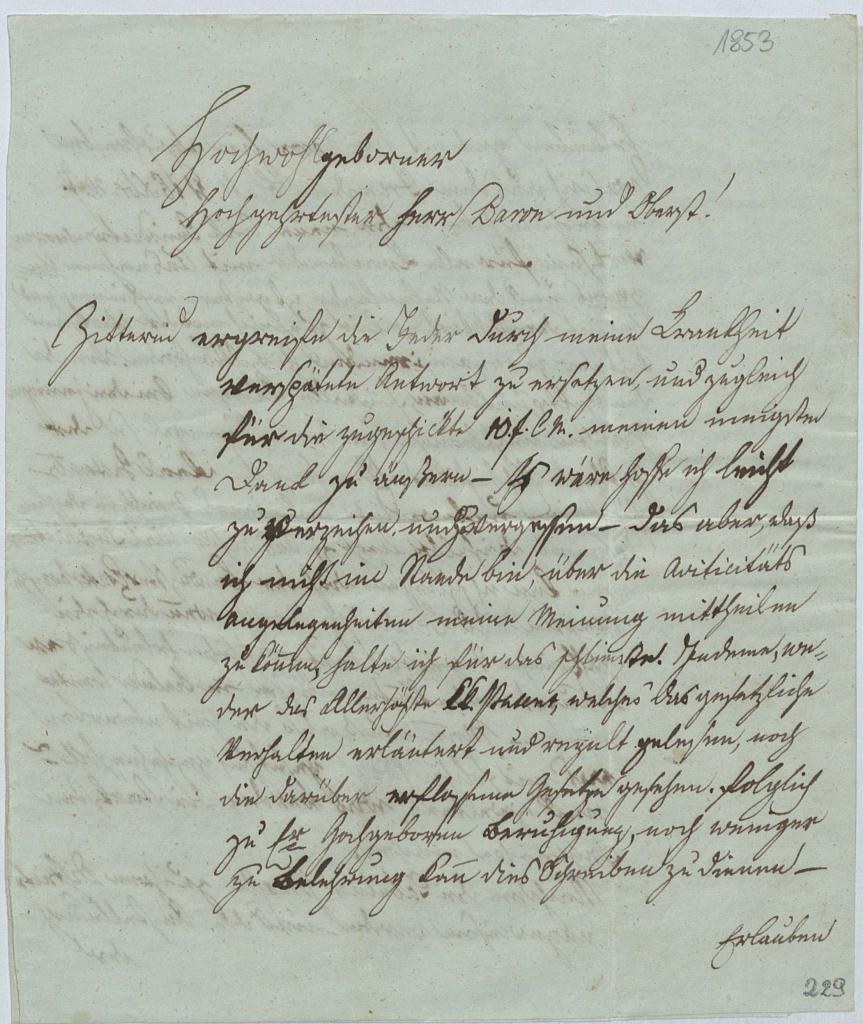 1853
Hochwohlgeborner
Hochgehrtester Herr Baron und Oberst!
Zitternd ergreiffe die Feder durch meine Krankheit
verspätete Antwort zu ersetzen, und zugleich
für die zugeschickte 10 f. CM. meinen innigsten
Dank zu äußern – Es wäre hoffe ich leicht
zu verzeihen, und vergessen – das aber, daß
ich nicht im Stande bin, über die Aviticitäts
angelegenheiten meine Meinung mittheilen
zu können, halte ich für das schlimste. Indeme, we-
der das Allerhöchste k.k. Patent, welches das gesetzliche
Verhalten erläutert und regult gelesen, noch
die darüber erflossene Gesetze gesehen. Folglich
zu Er Hochgeboren Beruhigung, noch weniger
zu Belehrung kan dies Schreiben zu dienen! –
Erlauben
229